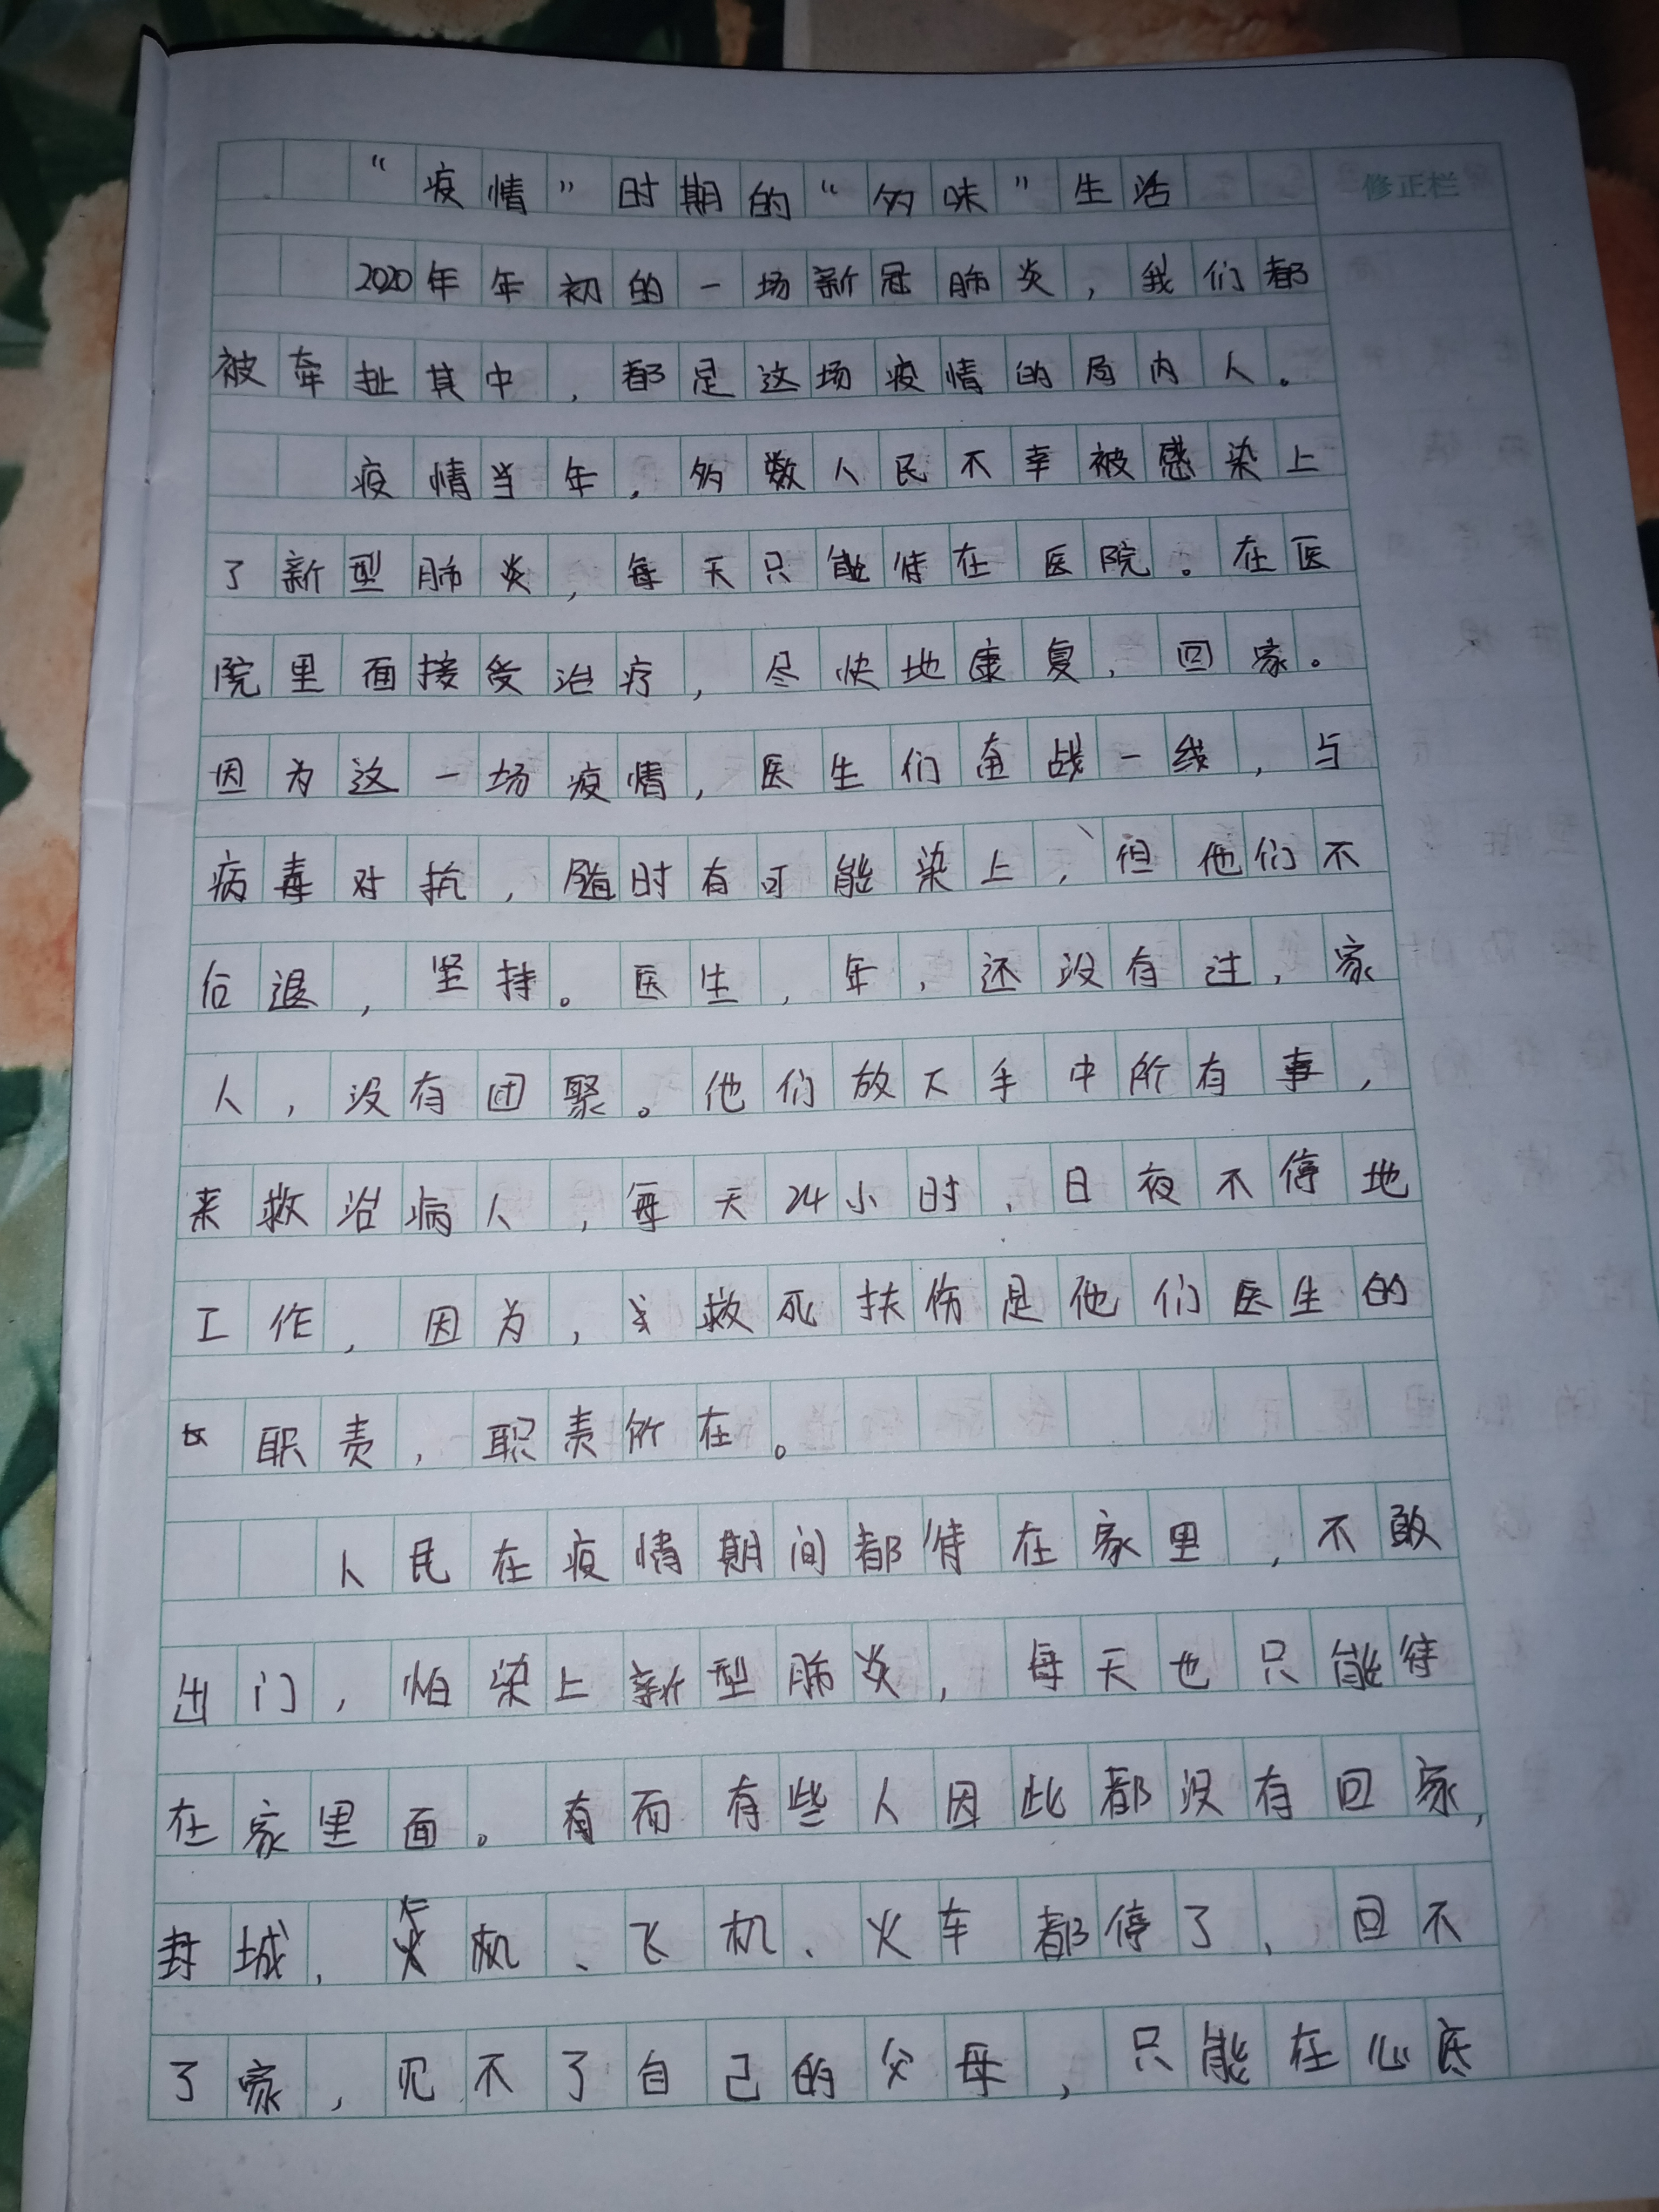 “疫情”时期的“多味”生活
修正栏
2020年年初的一场新冠肺炎，我们都
被牵扯其中，都是这场疫情的局内人。
疫情当年，多数人民不幸被感染上
了新型肺炎，每天只能待在医院。在医
院里面接受治疗，尽快地康复，回家。
因为这一场疫情，医生们奋战一线，与
病毒对抗，随时有可能染上，但他们不
后退，坚持。医生，年，还没有过，家
人，没有团聚。他们放下手中所有事，
来救治病人，每天24小时，日夜不停地
工作，因为，救死扶伤是他们医生的
职责，职责所在。
人民在疫情期间都待在家里，不敢
出门，怕染上新型肺炎，每天也只能待
在家里面。有而有些人因此都没有回家，
封城，机、飞机、火车都停了，回不
了家，见不了自己的父母，只能在心底